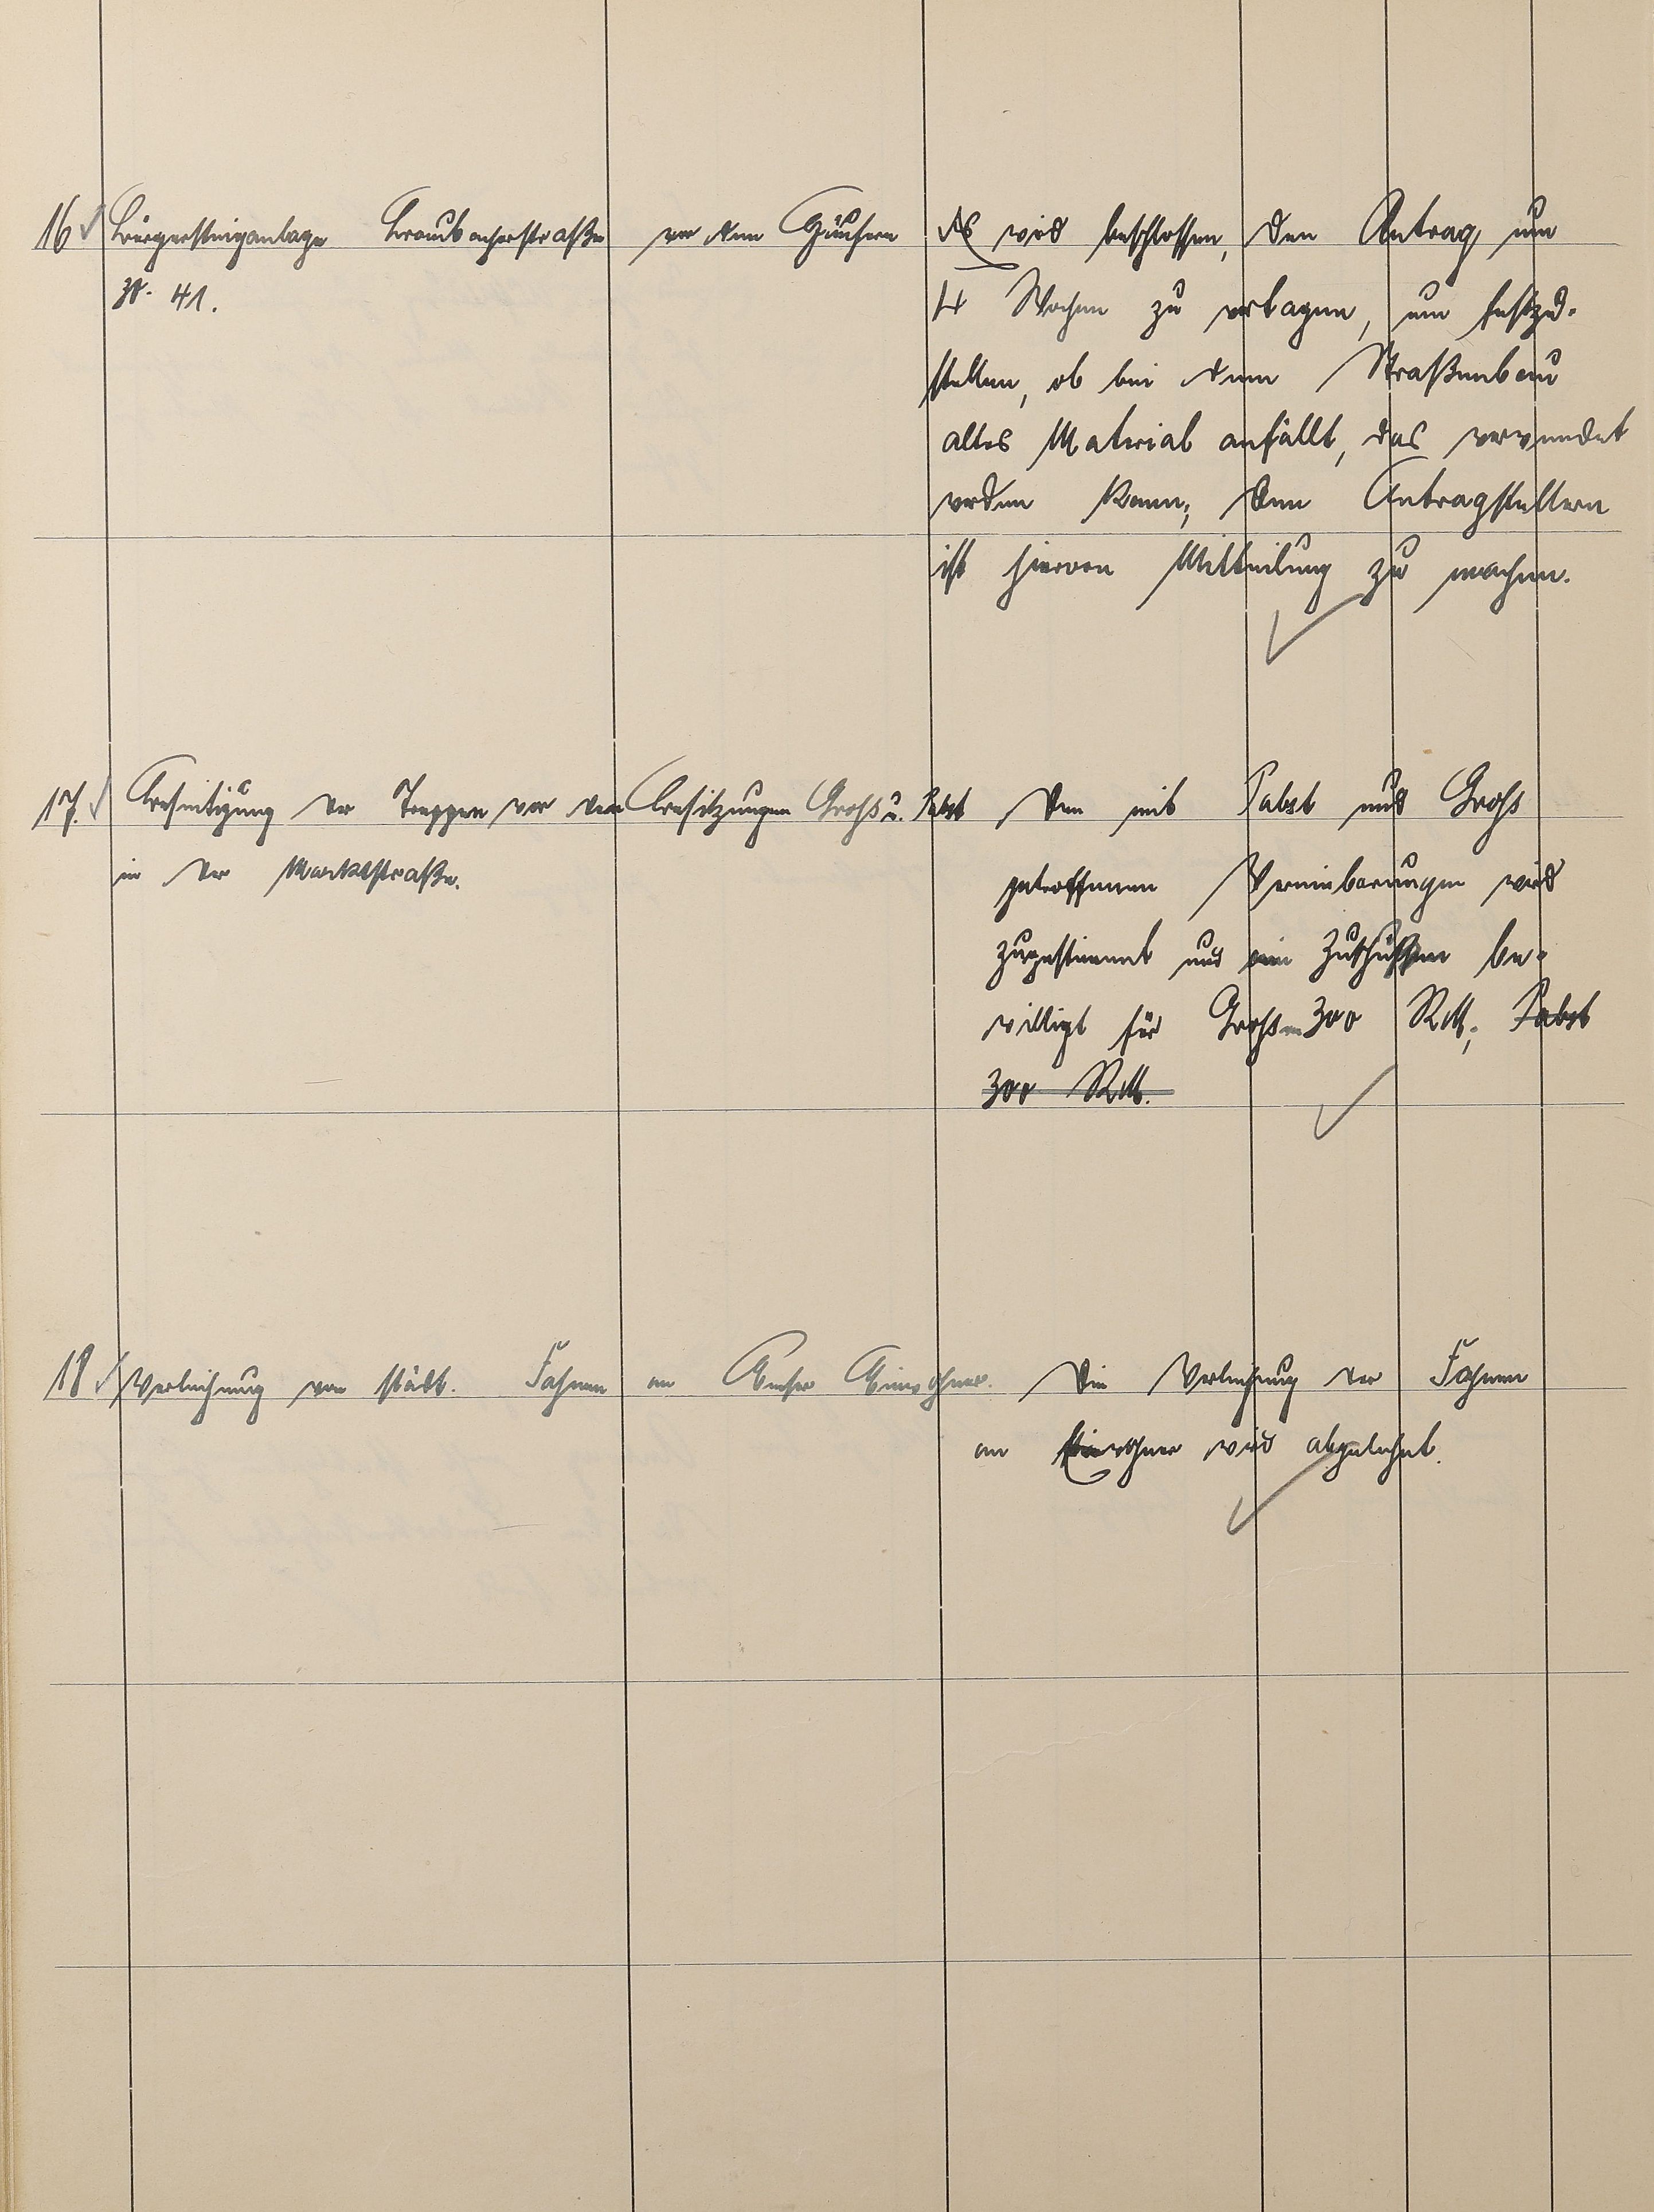 16 Bürgersteiganlage Braubacherstraße vor den Häusern
41.
Es wird beschlossen, den Antrag um
4 Wochen zu vertagen, um festzu-
stellen, ob bei dem Straßenbau
altes Material anfällt, das verwendet
werden kann; den Antragstellern
ist hiervon Mitteilung zu machen.
17. Beseitigung der Treppen vor den Besitzungen Groß u. Pabst
in der Marktstraße.
Den mit Pabst und Groß
getroffenen Vereinbarungen wird
zugestimmt und Zuschüsse be-
willigt für Groß 300 RM, Pabst
300 RM.
18 Verleihung von städt. Fahnen an Emser Einwohner.
Die Verleihung der Fahnen
an Einwohner wird abgelehnt.